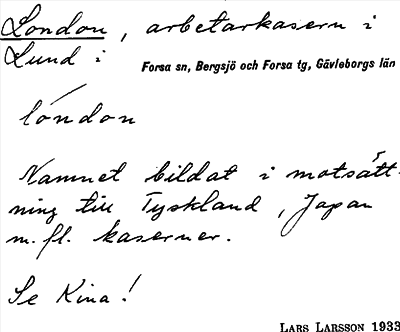 London, arbetarkasern i
Lund i Forsa sn, Bergsjö och Forsa tg, Gävleborgs län
lóndon
Namnet bildat i motsätt-
ning till Tyskland, Japan
m.fl. kaserner.
Se Kina!
LARS LARSSON 1933